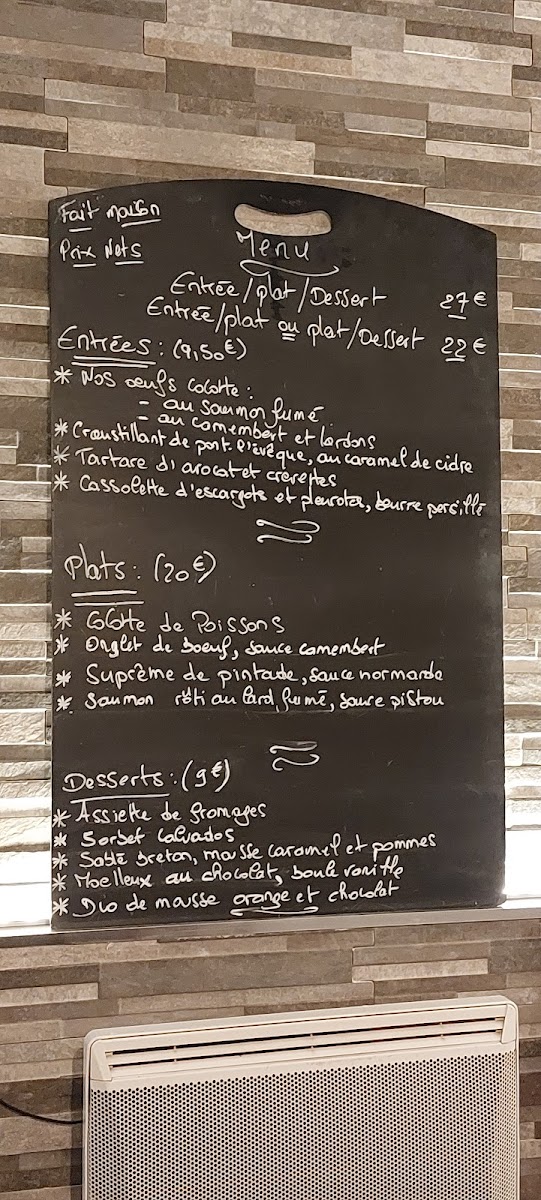 Fait maison
Prix Nets
Menu
Entrée/plat/Dessert 27€
Entrée/plat ou plat/Dessert 22€
Entrées : (9,50€)
* Nos œufs cocotte :
- au saumon fumé
- au camembert et lardons
* Croustillant de pont-l'évêque, au caramel de cidre
* Tartare d'avocat et crevettes
* Cassolette d'escargots et pleurotes, beurre persillé
Plats : (20€)
* Cocotte de Poissons
* Onglet de boeuf, sauce camembert
* Suprême de pintade, sauce normande
* Saumon rôti au lard fumé, sauce pistou
Desserts : (9€)
* Assiette de fromages
* Sorbet Calvados
* Sablé breton, mousse caramel et pommes
* Moelleux au chocolat, boule vanille
* Duo de mousse orange et chocolat